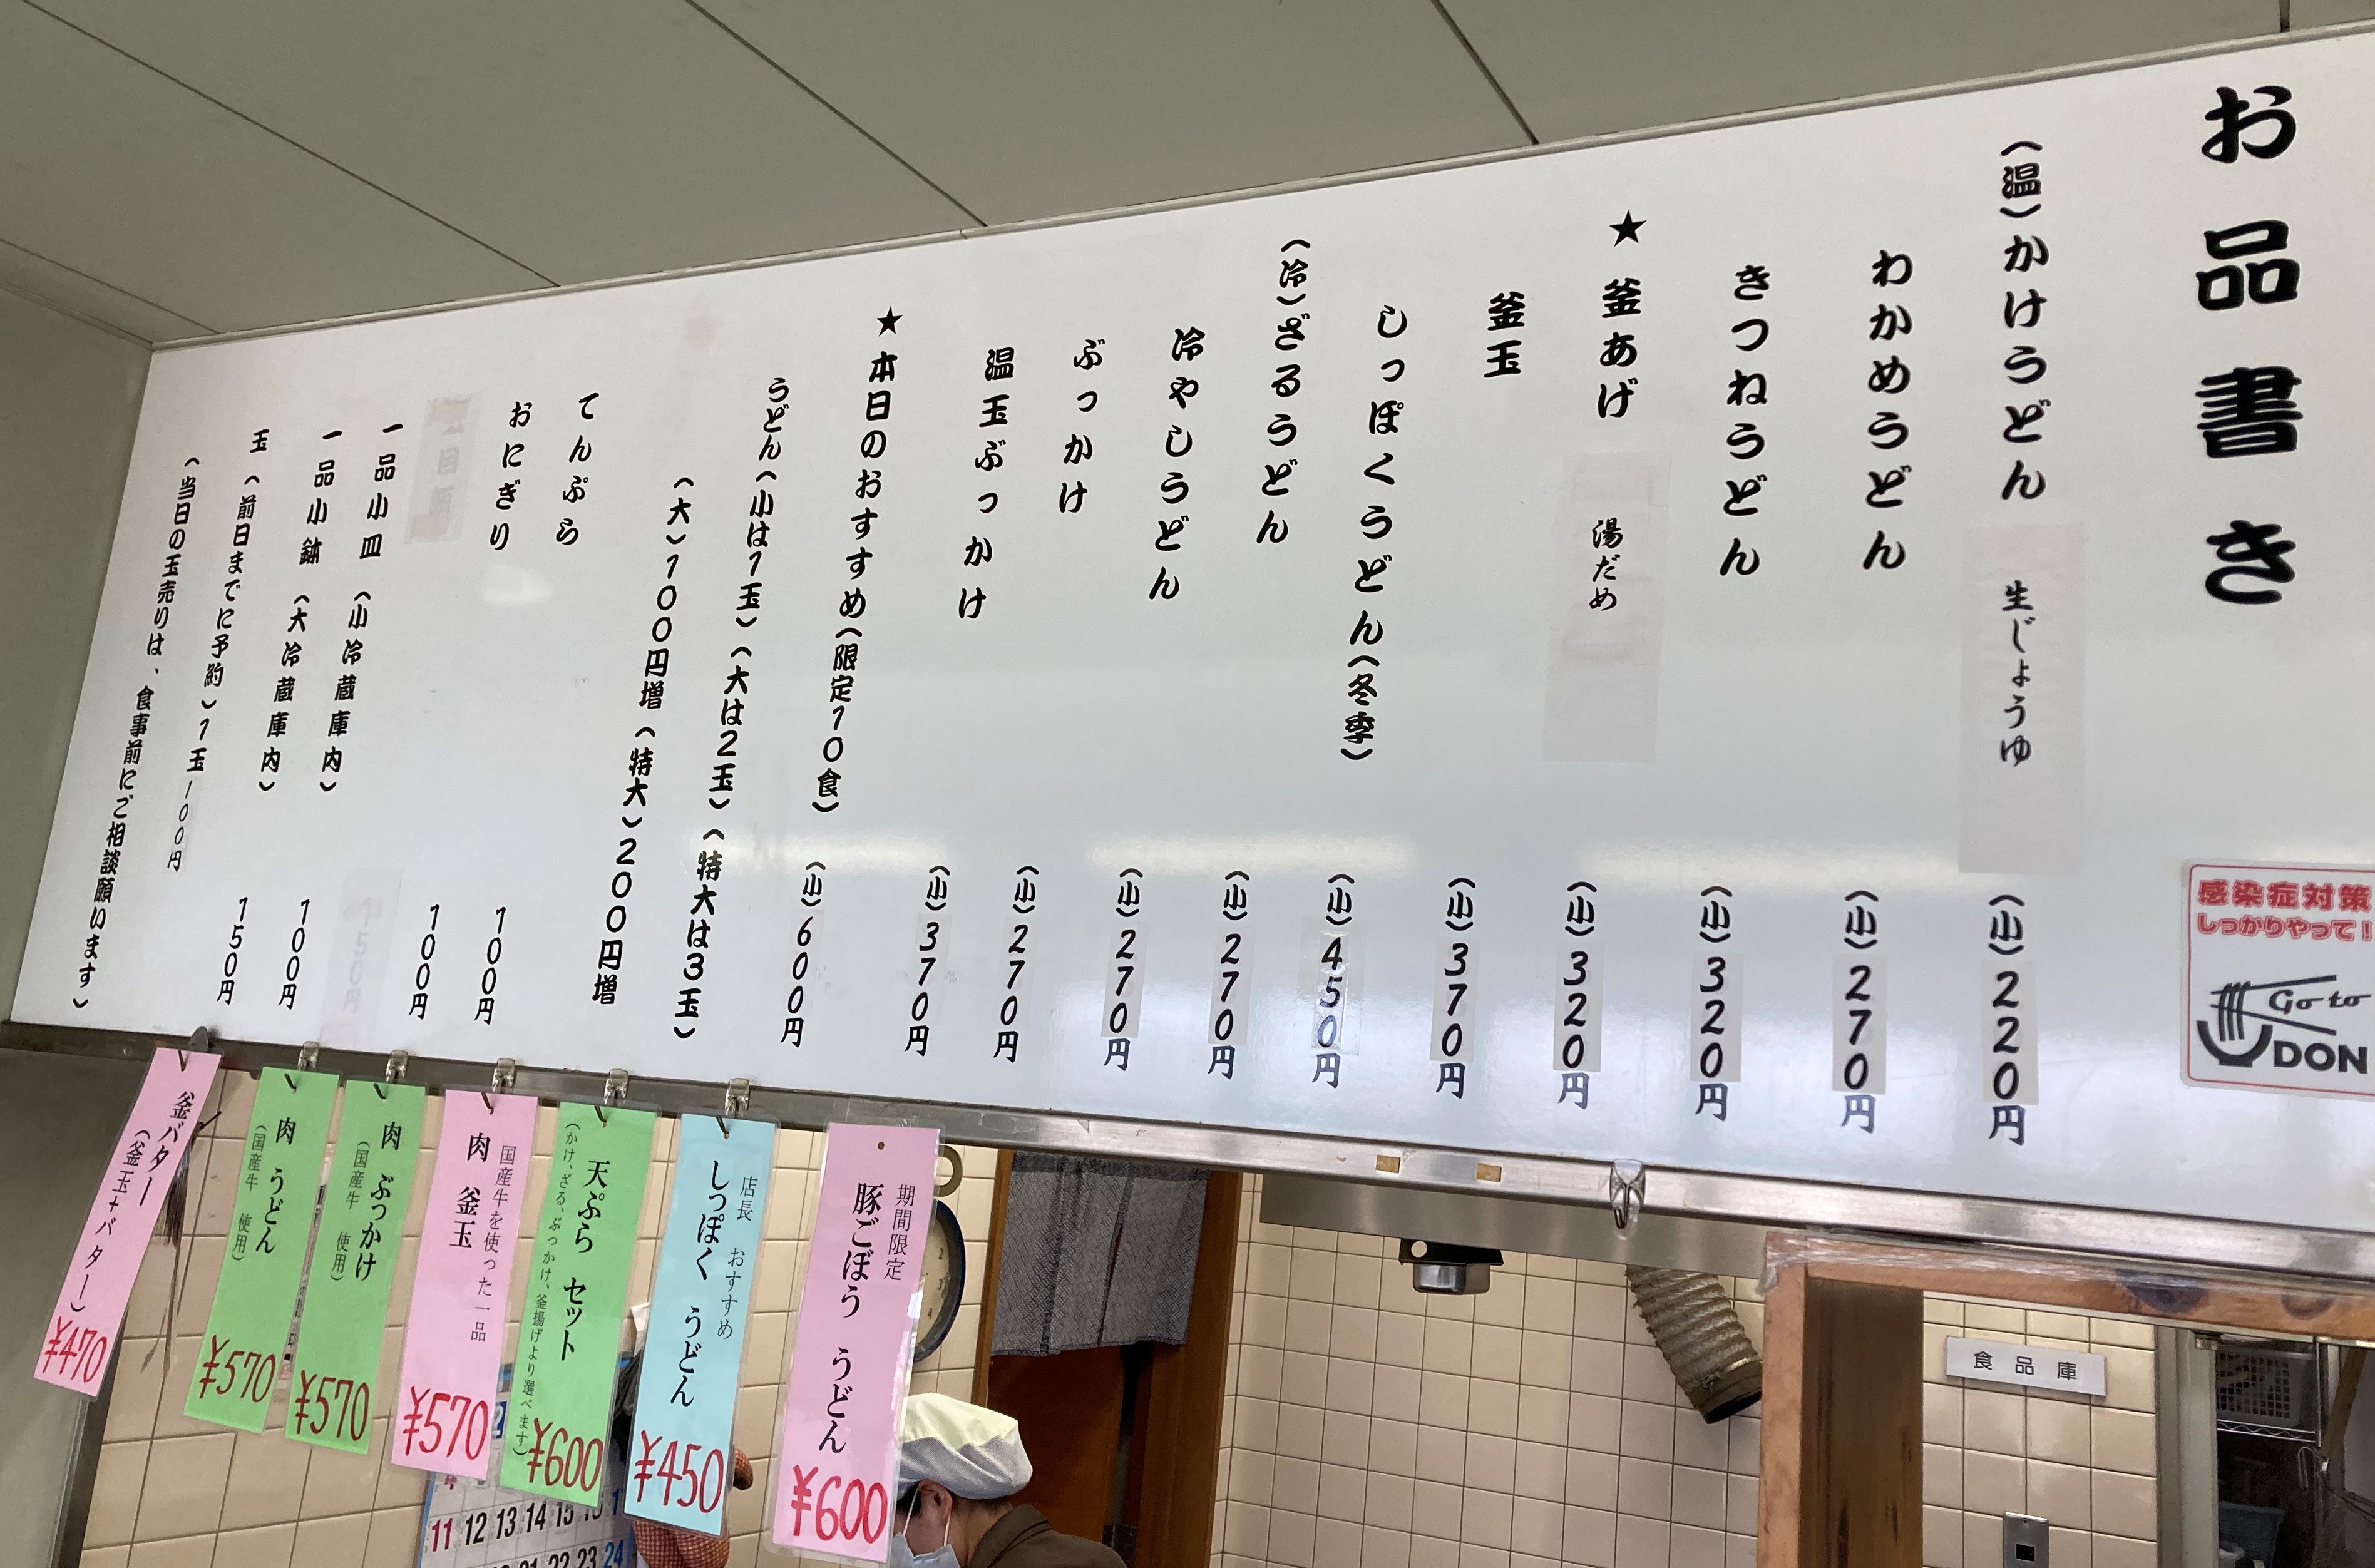 お品書き
(温)かけうどん 生じょうゆ (小)220円
わかめうどん (小)270円
きつねうどん (小)320円
★釜あげ 湯だめ (小)320円
釜玉 (小)370円
しっぽくうどん(冬季) (小)450円
(冷)ざるうどん (小)270円
冷やしうどん (小)270円
ぶっかけ (小)270円
温玉ぶっかけ (小)370円
★本日のおすすめ(限定10食) (小)600円
うどん(小は1玉)(大は2玉)(特大は3玉)
(大)100円増(特大)200円増
てんぷら 100円
おにぎり 100円
一品小皿(小冷蔵庫内) 100円
一品小鉢(大冷蔵庫内) 150円
玉(前日までに予約)1玉100円
(当日の玉売りは、食事前にご相談願います)
感染症対策
しっかりやって!
Go to
UDON
期間限定
豚ごぼう うどん
¥600
店長 おすすめ
しっぽく うどん
¥450
天ぷら セット
(かけ、ざる、ぶっかけ、釜揚げより選べます)
¥600
国産牛を使った一品
肉 釜玉
¥570
肉 ぶっかけ
(国産牛 使用)
¥570
肉 うどん
(国産牛 使用)
¥570
釜バター
(釜玉+バター)
¥470
食品庫
11 12 13 14 15
22 23 24